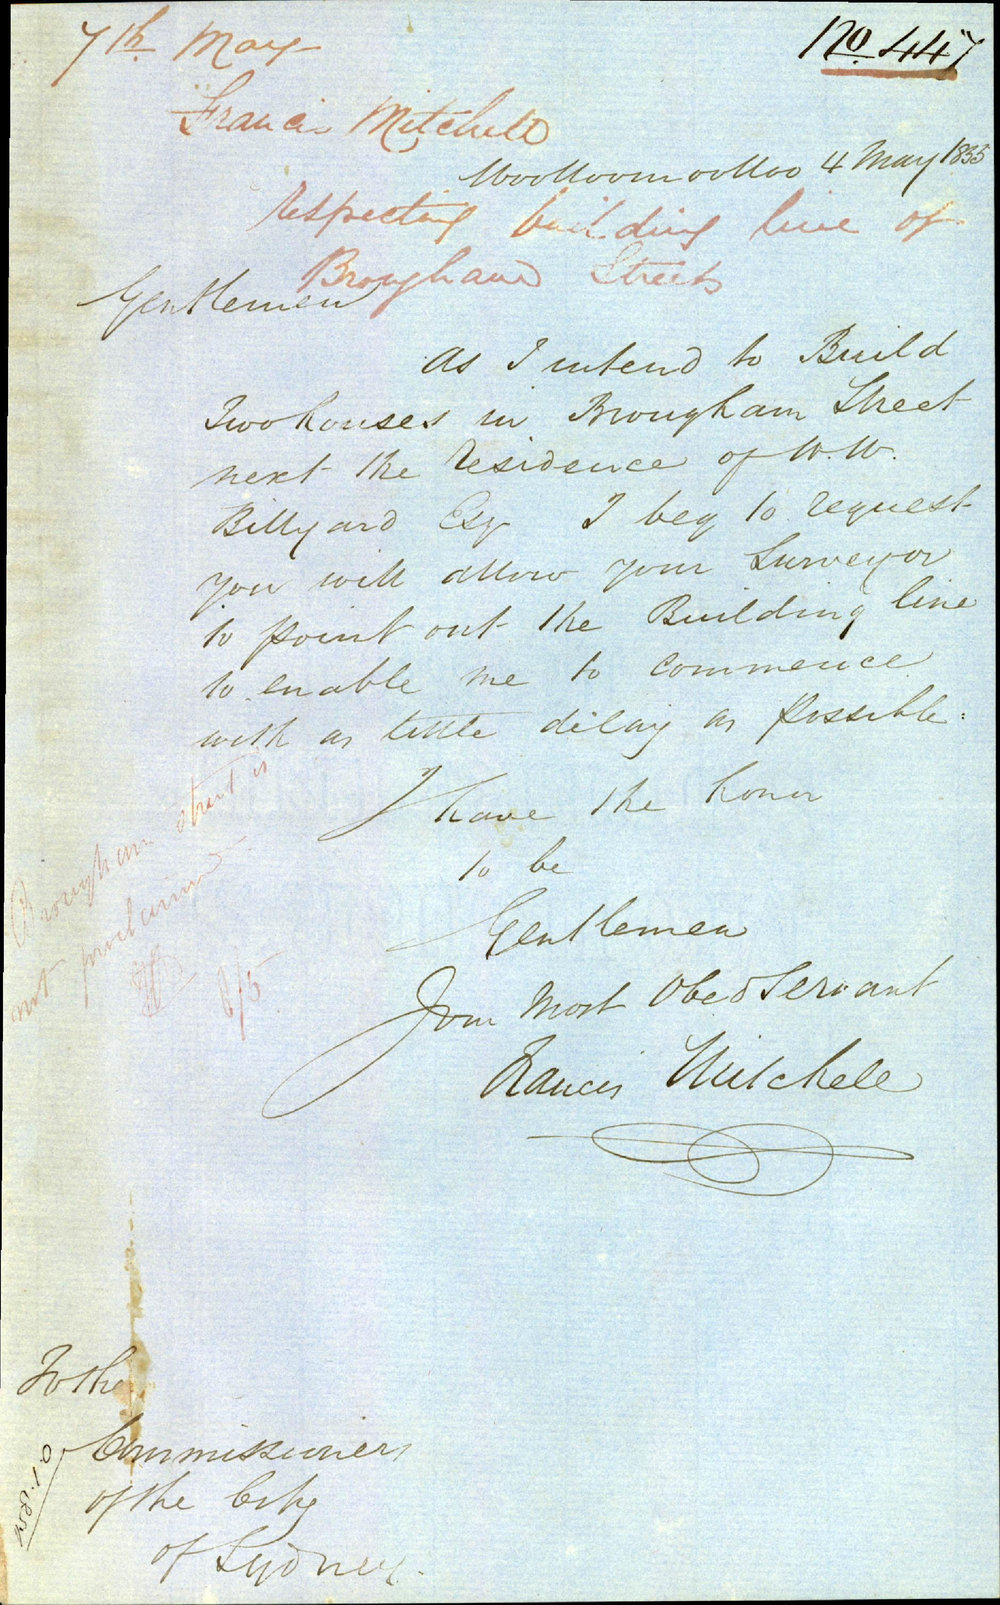 7th May
No 447
Francis Mitchell
Woolloomoolloo 4 May 1855
respecting building line of
Brougham Street
Gentlemen
As I intend to Build
Two houses in Brougham Street
next the residence of W.W.
Billyard Esq I beg to request
you will allow your Surveyor
to point out the Building line
to enable me to commence
with as little delay as possible.
I have the honor
to be
Gentlemen
Your Most Obed Servant
Francis Mitchell
Brougham street is
not proclaimed
8/5
To the
Commissioners
of the City
of Sydney.